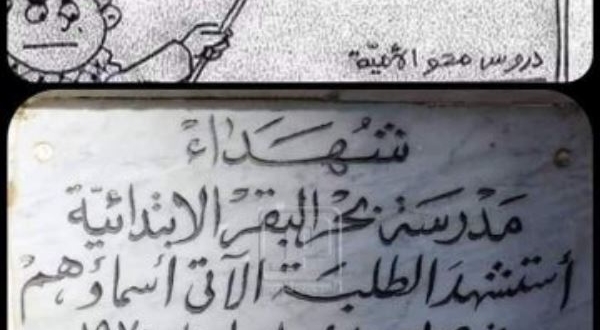 دروس محو الأميّة
شُهَدَاءُ
مَدْرَسَة بَحْر البَقَر الابتدائيّة
أستشهدَ الطلبَة الآتى أسماؤهمْ